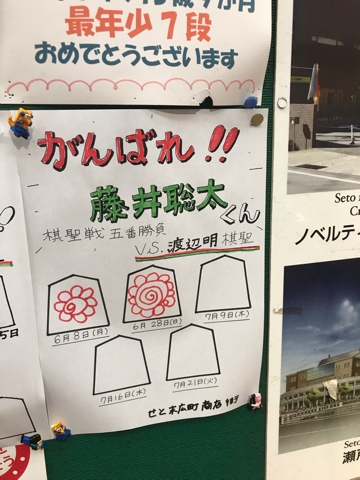 最年少7段
おめでとうございます
がんばれ!!
藤井聡太くん
棋聖戦 五番勝負
V.S. 渡辺明 棋聖
6月8日(月)
6月28日(日)
7月9日(木)
7月16日(木)
7月21日(火)
せと末広町商店街
Seto
ノベルティ
Seto
瀬戸